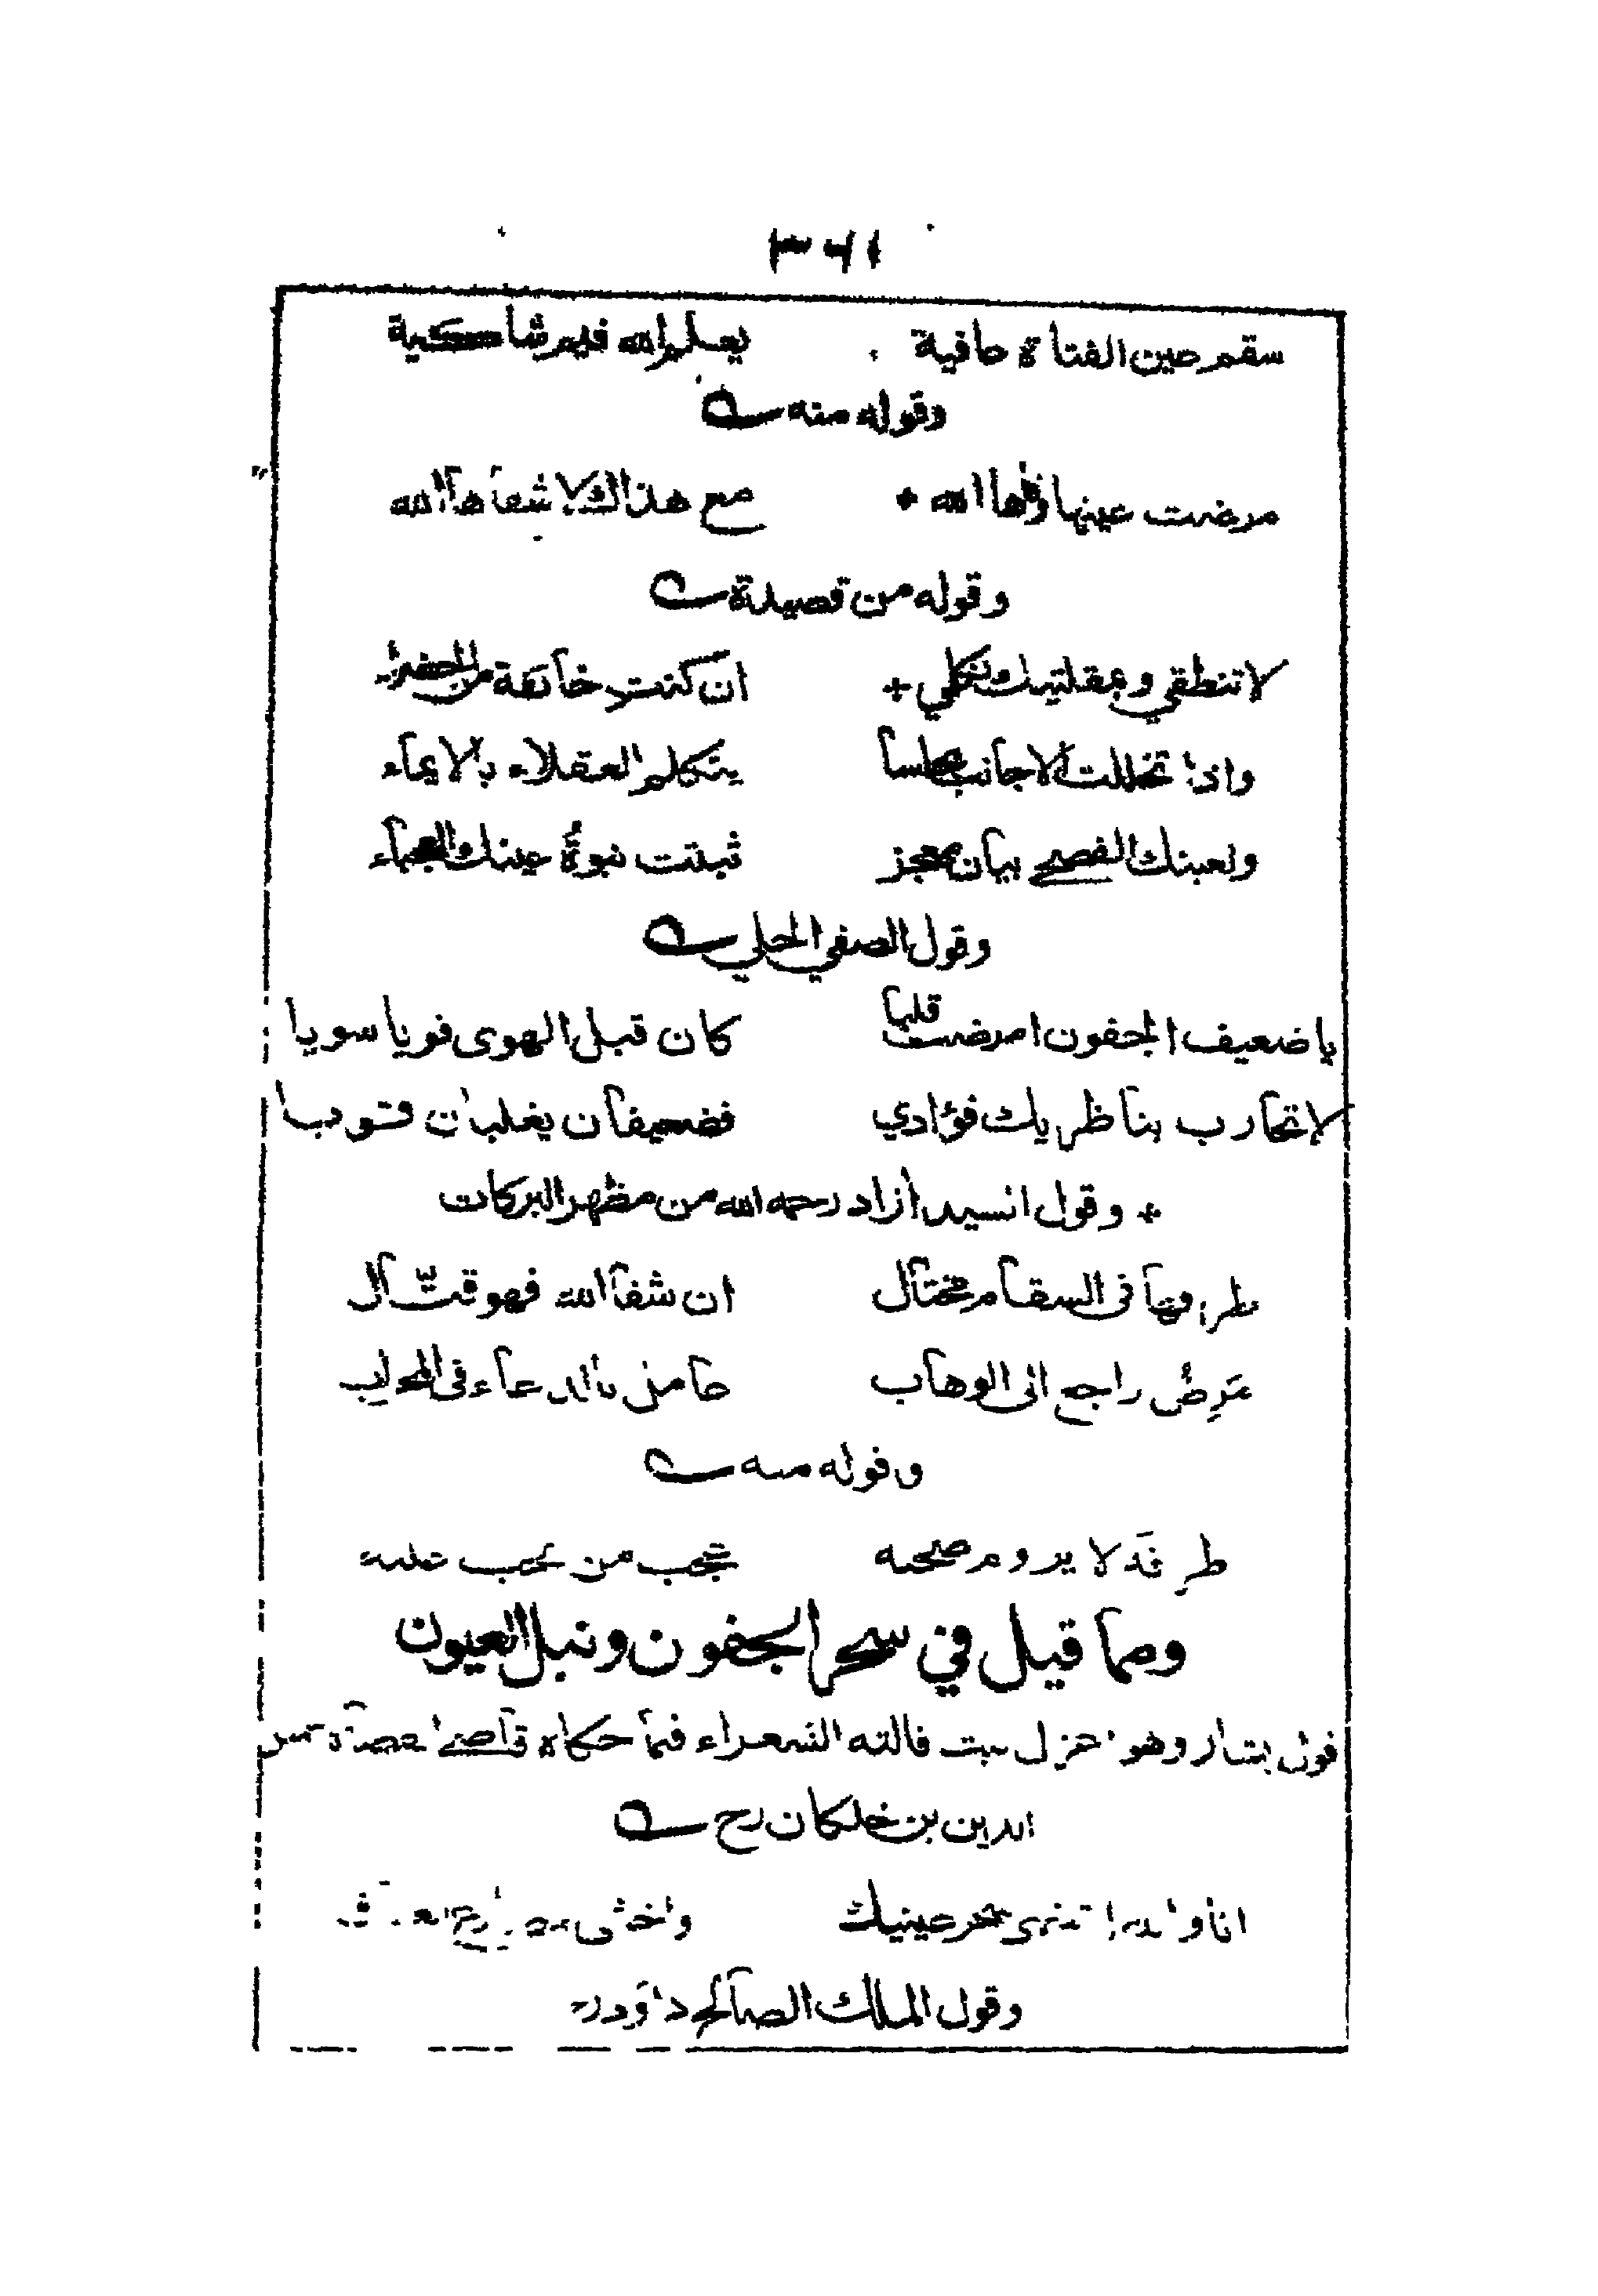 ٣٦١
سقم عين الفتاة عافية يعلم الله فيم شاكية
وقوله منه
مرضت عينها وقاها الله + مع هذا فلا شفاها الله
وقوله من قصيدة
لا تنطقي وبمقلتيك وتكلمي + ان كنت خائفة من الحضراء
واذا تخللت الاجانب مجلسا يتكلم العقلاء بالايماء
ولعينك الفصحى بيان معجز ثبتت نبوة عينك النجباء
وقول الصفي الحلي
يا ضعيف الجفون امرضت قلبا كان قبل الهوى قويا سويا
لا تحارب بناظريك فؤادي فضعيفان يغلبان قويا
+ وقول السيد آزاد رحمه الله من مظهر البركات
طرفها فى السقام مختال ان شفا الله فهو قتّال
مَرِضٌ راجع الى الوهاب حامل بالدعاء فى المحراب
وقوله منه
طرفه لا يدوم صحته عجب من
ومما قيل في سحر الجفون ونبل العيون
قول بشار وهو اغزل بيت قالته الشعراء فيما حكاه قاضى القضاة شمس
الدين بن خلكان رح
انا والله اشتهى سحر عينيك واخشى مصارع العشاق
وقول الملك الصالح داود